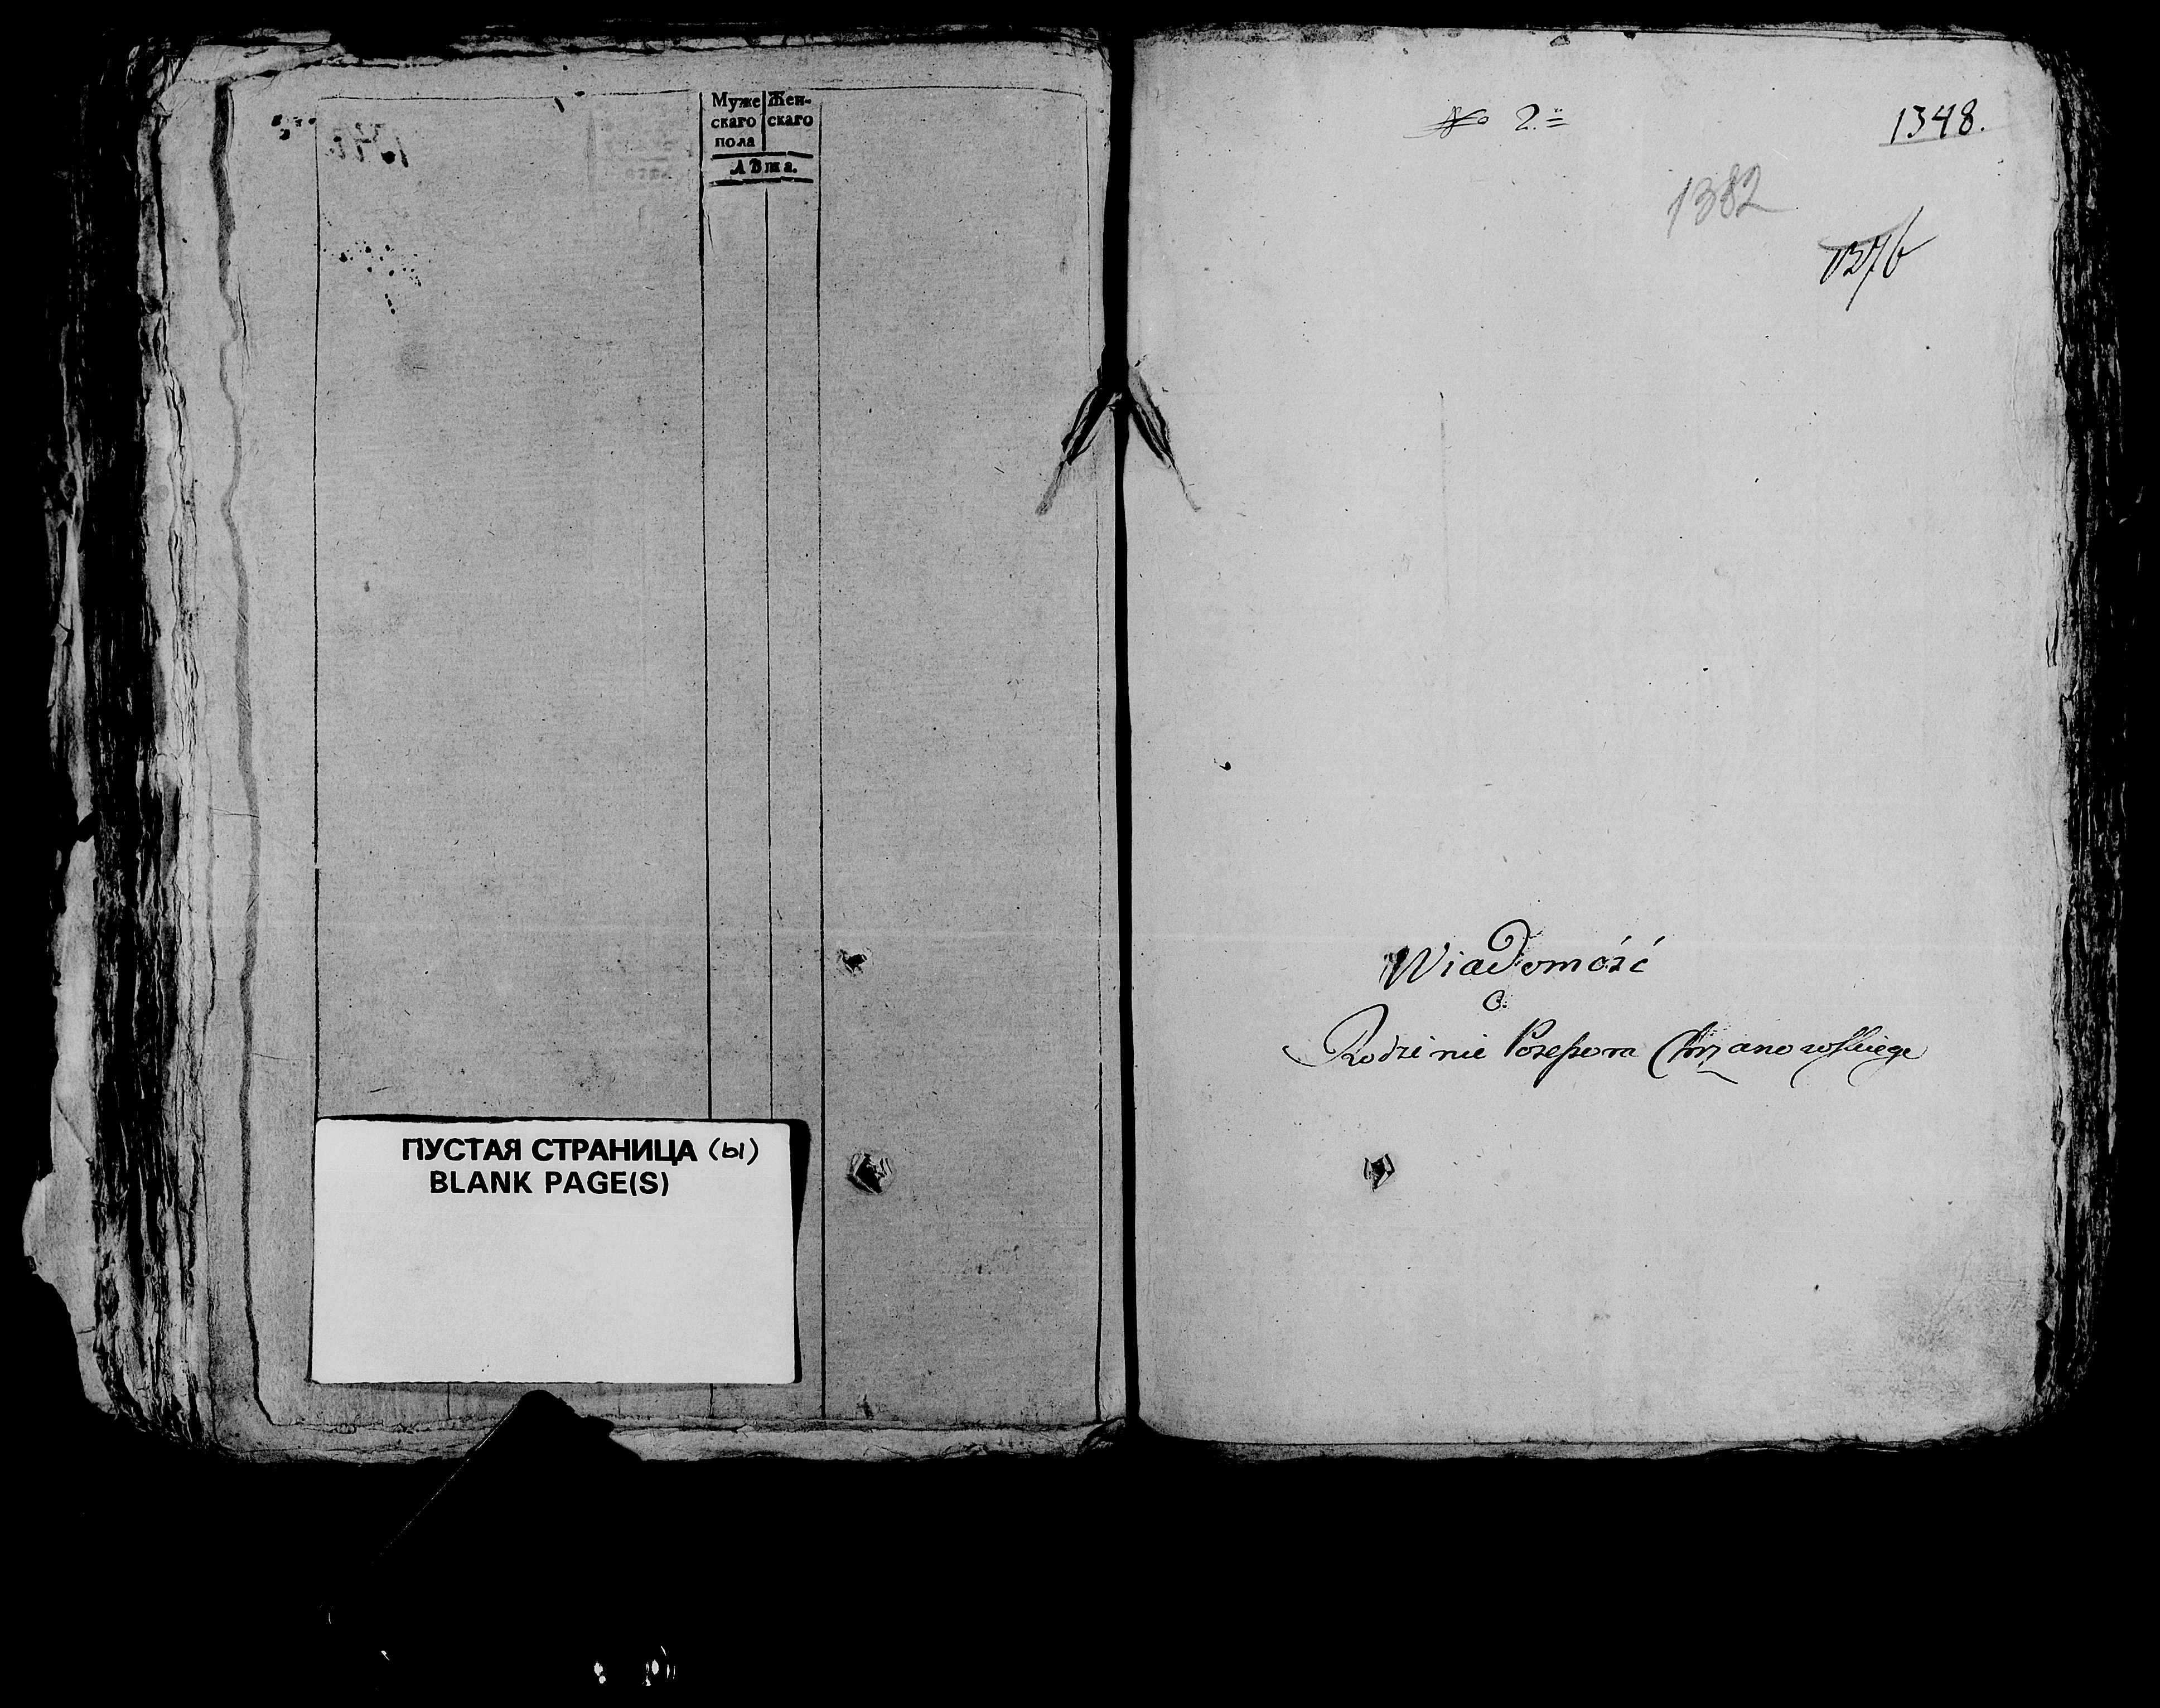 Муже Жен-
скаго скаго
пола
Лѣта.
ПУСТАЯ СТРАНИЦА (ы)
BLANK PAGE(S)
№ 2.
1348.
1382
1376
Wiadomość
O.
Rodzinie Possessora Chrzanowskiego